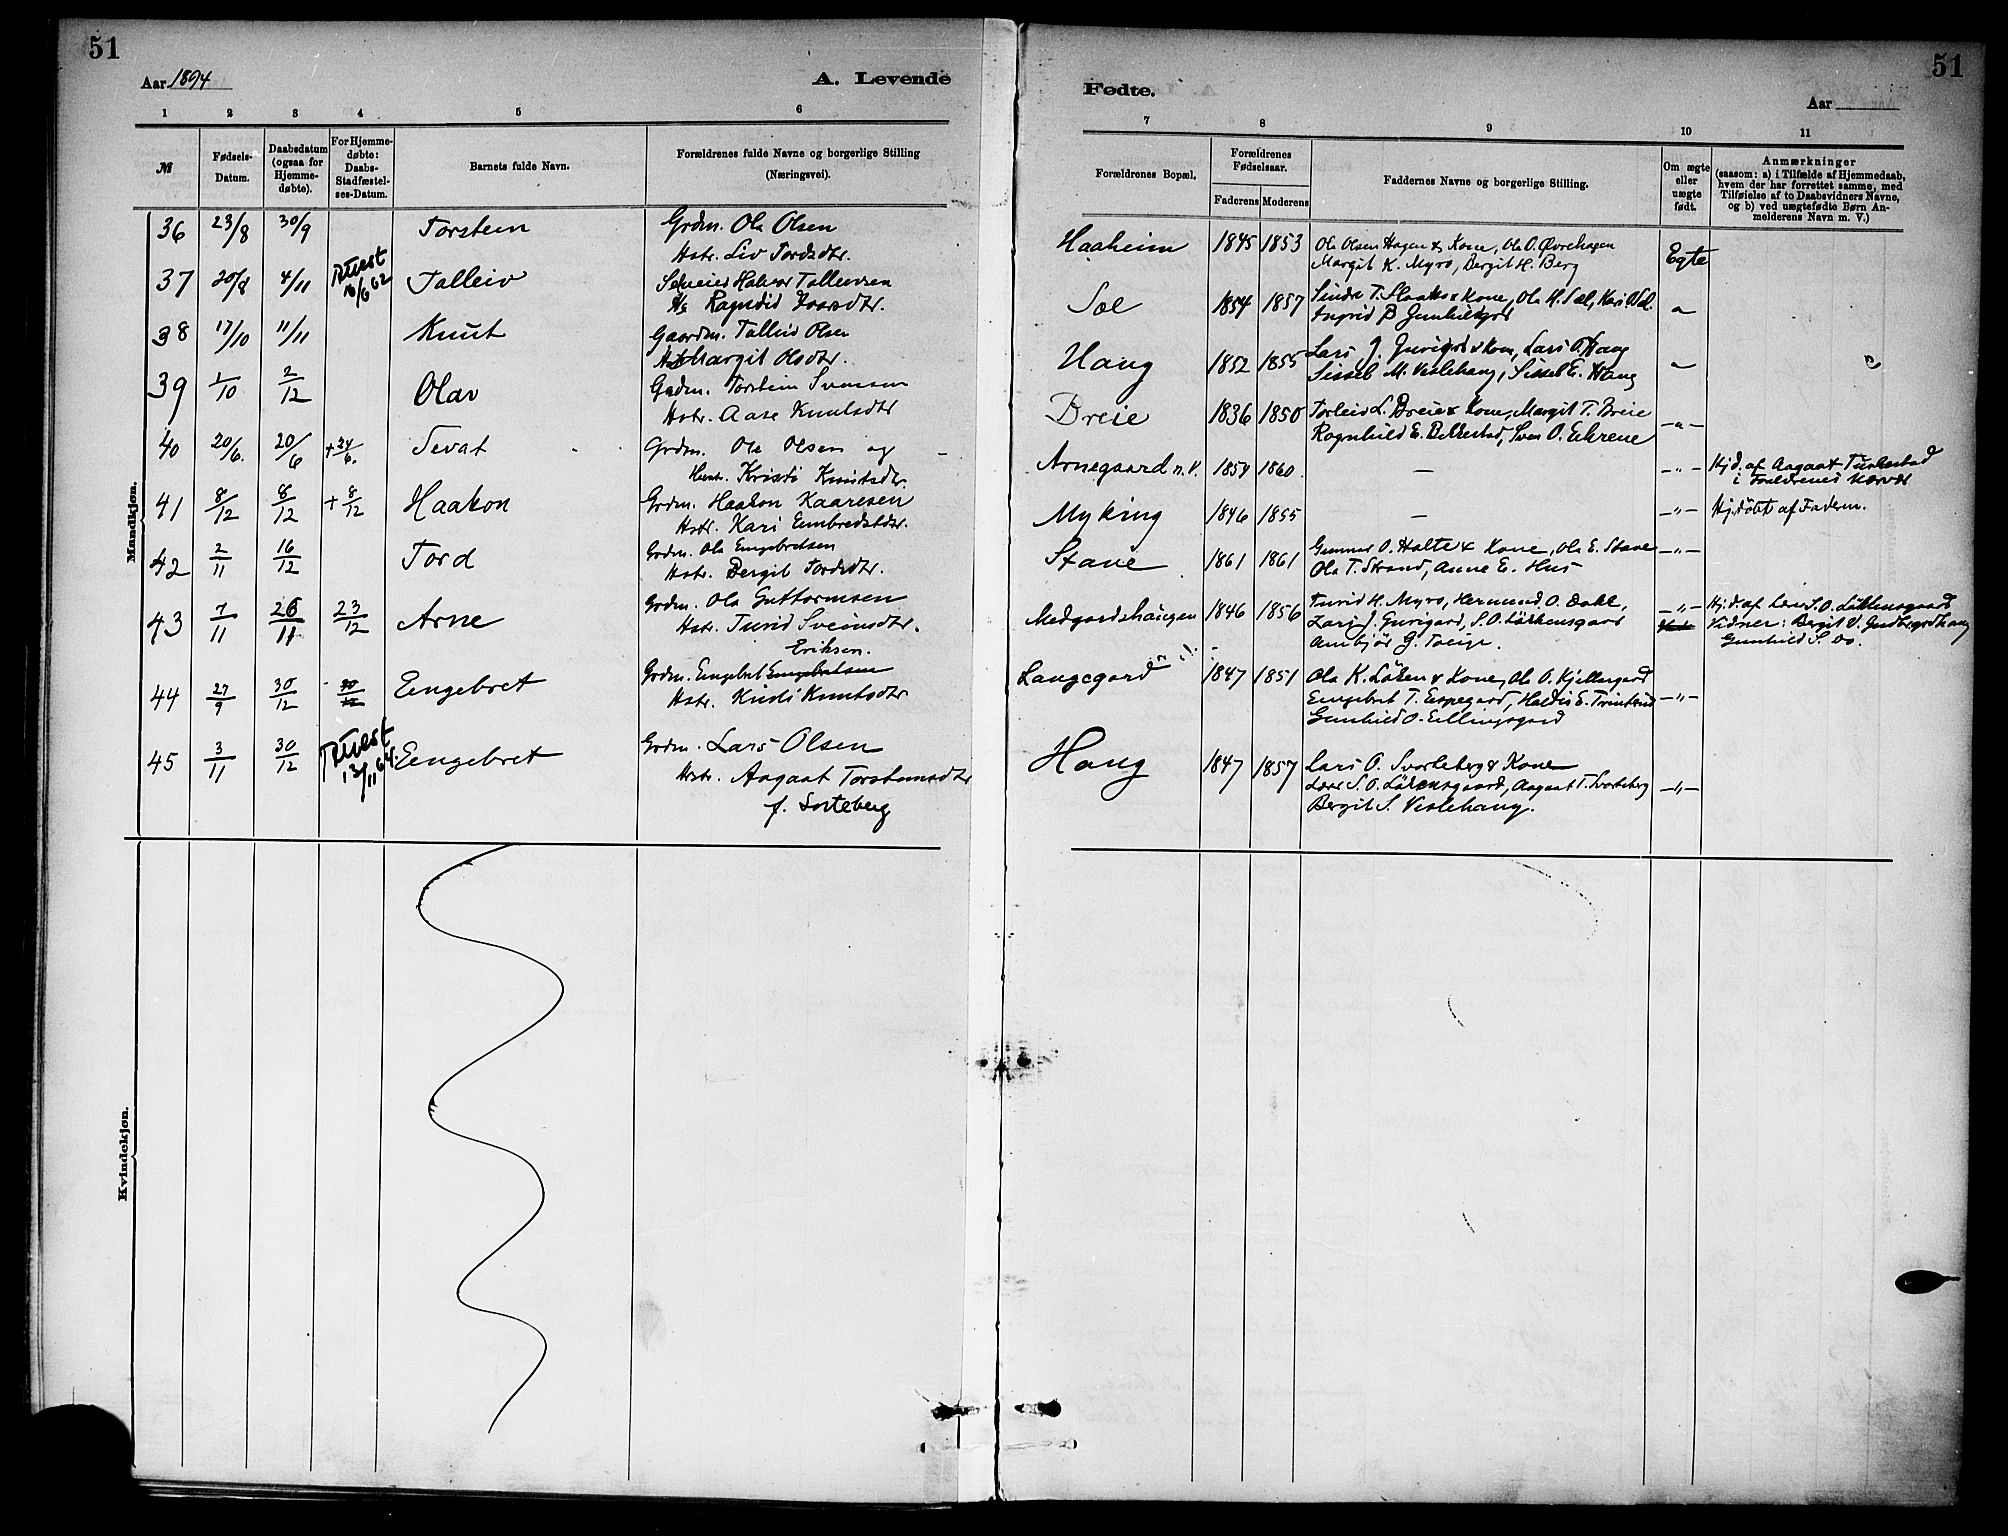 51
Aar 1894
A. Levende
1 2 3 4 5 6
№
Fødsels-Datum.
Daabsdatum (ogsaa for Hjemmedøbte).
For Hjemmedøbte: Daabs-Stadfæstelses-Datum.
Barnets fulde Navn.
Forældrenes fulde Navne og borgerlige Stilling (Næringsvei).
Mandkjøn.
36 23/8 30/9 Torstein Grdm. Ola Olsen
Hstr. Liv Tordsdtr.
37 20/8 4/11 Attest 16/6 62 Talleiv Halvor Talleivsen
Ragndid
38 17/10 11/11 Knut Gaardm. Talleiv Olsen
Margit Olsdtr.
39 1/10 2/12 Olav Grdm. Torstein Svensen
Hstr. Aase Knutsdtr
40 20/6. 20/6 +24/6. Sevat Grdm. Ole Olsen og
Kristi Knutsdtr.
41 8/12 8/12 +8/12 Haakon Grdm. Haakon Kaaresen
Hstr. Kari Embretsdtr.
42 2/11 16/12 Tord Grdm. Ola Engebretsen
Hstr. Bergit Tordsdtr.
43 7/11 26/11 23/12 Arne Grdm. Ola Guttormsen
Hstr. Turid Sveinsdtr.
Eriksen.
44 27/9 30/12 Eengebret Grdm. Eengebret Eengebretsen
Hstr. Knutsdtr
45 3/11 30/12 Attest 13/11 64. Eengebret Grdm. Lars Olsen
Hstr. Aagaat Torsteinsdtr
f. Sorteberg
Kvindekjøn.
51
Fødte.
Aar
7 8 9 10 11
Forældrenes Bopæl.
Forældrenes Fødselsaar.
Faderens Moderens
Faddernes Navne og borgerlige Stilling.
Om ægte eller uægte født.
Anmærkninger
(saasom: a) i Tilfælde af Hjemmedaab, hvem der har forrettet samme, med Tilføielse af to Daabsvidners Navne, og b) ved uægtefødte Børn Anmelderens Navn m. V.)
Haaheim 1845 1853 Ola Olsen Hagen & Kone, Ole O. Øvrehagen
Margit K. Myro, Bergit H. Berg Egte
Sæl 1854 1857 & Kone, Ola H. Sæl, Kari
Ingrid
Haug 1852 1855 Lars J. & Kone, Lars O. Haug
Sissel M. Veslehaug, Sissel E. Haug
Breie 1836 1850 Torleiv L. Breie & Kone, Margit T. Breie
Ragnhild E. Bekkestad, Sven O.
Arnegaard n. V. 1854 1860. — -"- Hjd. af Aagaat
i Forældrenes
Myking 1846 1855 — -"- Hj.døbt af Faderen.
Stave 1861 1861 Gunnar O. Halte & Kone, Ola E. Stave -"-
Ola T. Strand, Anne E. Hus
Medgardshaugen 1846 1856 Turid H. Myro, Hermund O. Dokk, -"- Hj.d. af Lærer S. O. Løkkensgaard
Lars J. Gurigard, S. O. Løkkensgaard Vidner: Bergit O.
Ambjør G. Gunhild S. Do.
Langegard 1847 1851 Ola K. Løken & Kone, Ole O. Kjellergard
Eengebret T. Espegard, Haldis E. -"-
Gunhild O. Ellingsgard
Haug 1847 1857 Lars O. Svorteberg & Kone
Lærer S. O. Løkensgaard, Aagaat T. Svorteberg -"-
Bergit S. Veslehaug.